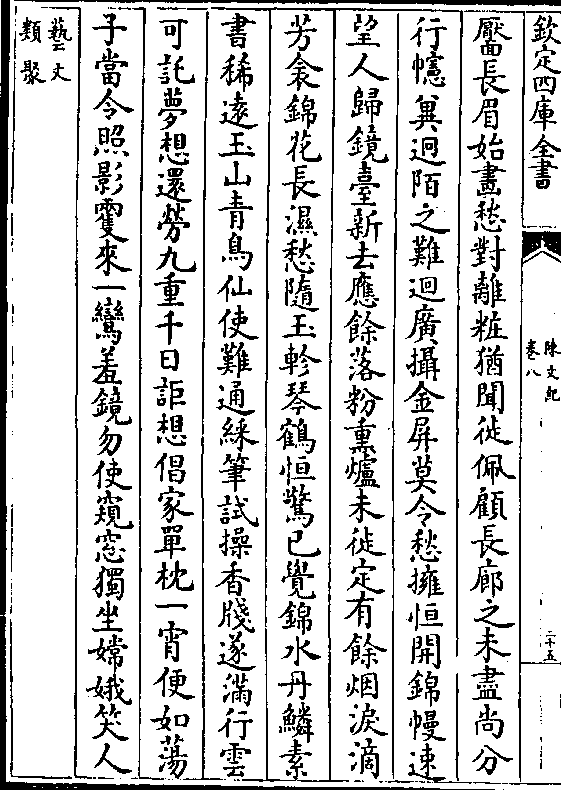 欽定四庫全書
陳文紀
卷八
二十五
靨長眉始畫愁對離粧猶聞徙佩顧長廊之未盡尚分
行幰冀迥陌之難迴廣攝金屏莫令愁擁恒開錦幔速
望人歸鏡臺新去應餘落粉熏爐未徙定有餘烟淚滴
芳衾錦花長濕愁隨玉軫琴鶴恒驚已覺錦水丹鱗素
書稀遠玉山青鳥仙使難通綵筆試操香牋遂滿行雲
可託夢想還勞九重千日詎想倡家單枕一宵便如蕩
子當令照影雙來一鸞羞鏡勿使窺窓獨坐嫦娥笑人
藝文
類聚